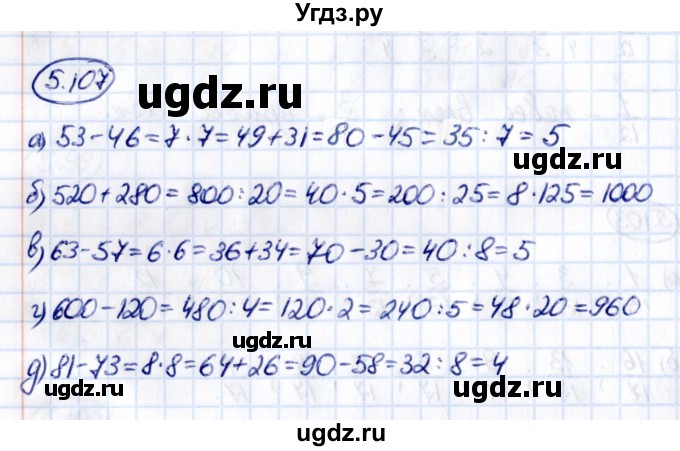 Угдз.ру
5.107
ugdz.ru
а) 53-46=7·7=49+31=80-45=35:7=5
ugdz.ru
б) 520+280=800:20=40·5=200:25=8·125=1000
в) 63-57=6·6=36+34=70-30=40:8=5
г) 600-120=480:4=120·2=240:5=48·20=960
ugdz.ru
д) 81-73=8·8=64+26=90-58=32:8=4
ugdz.ru
ugdz.ru